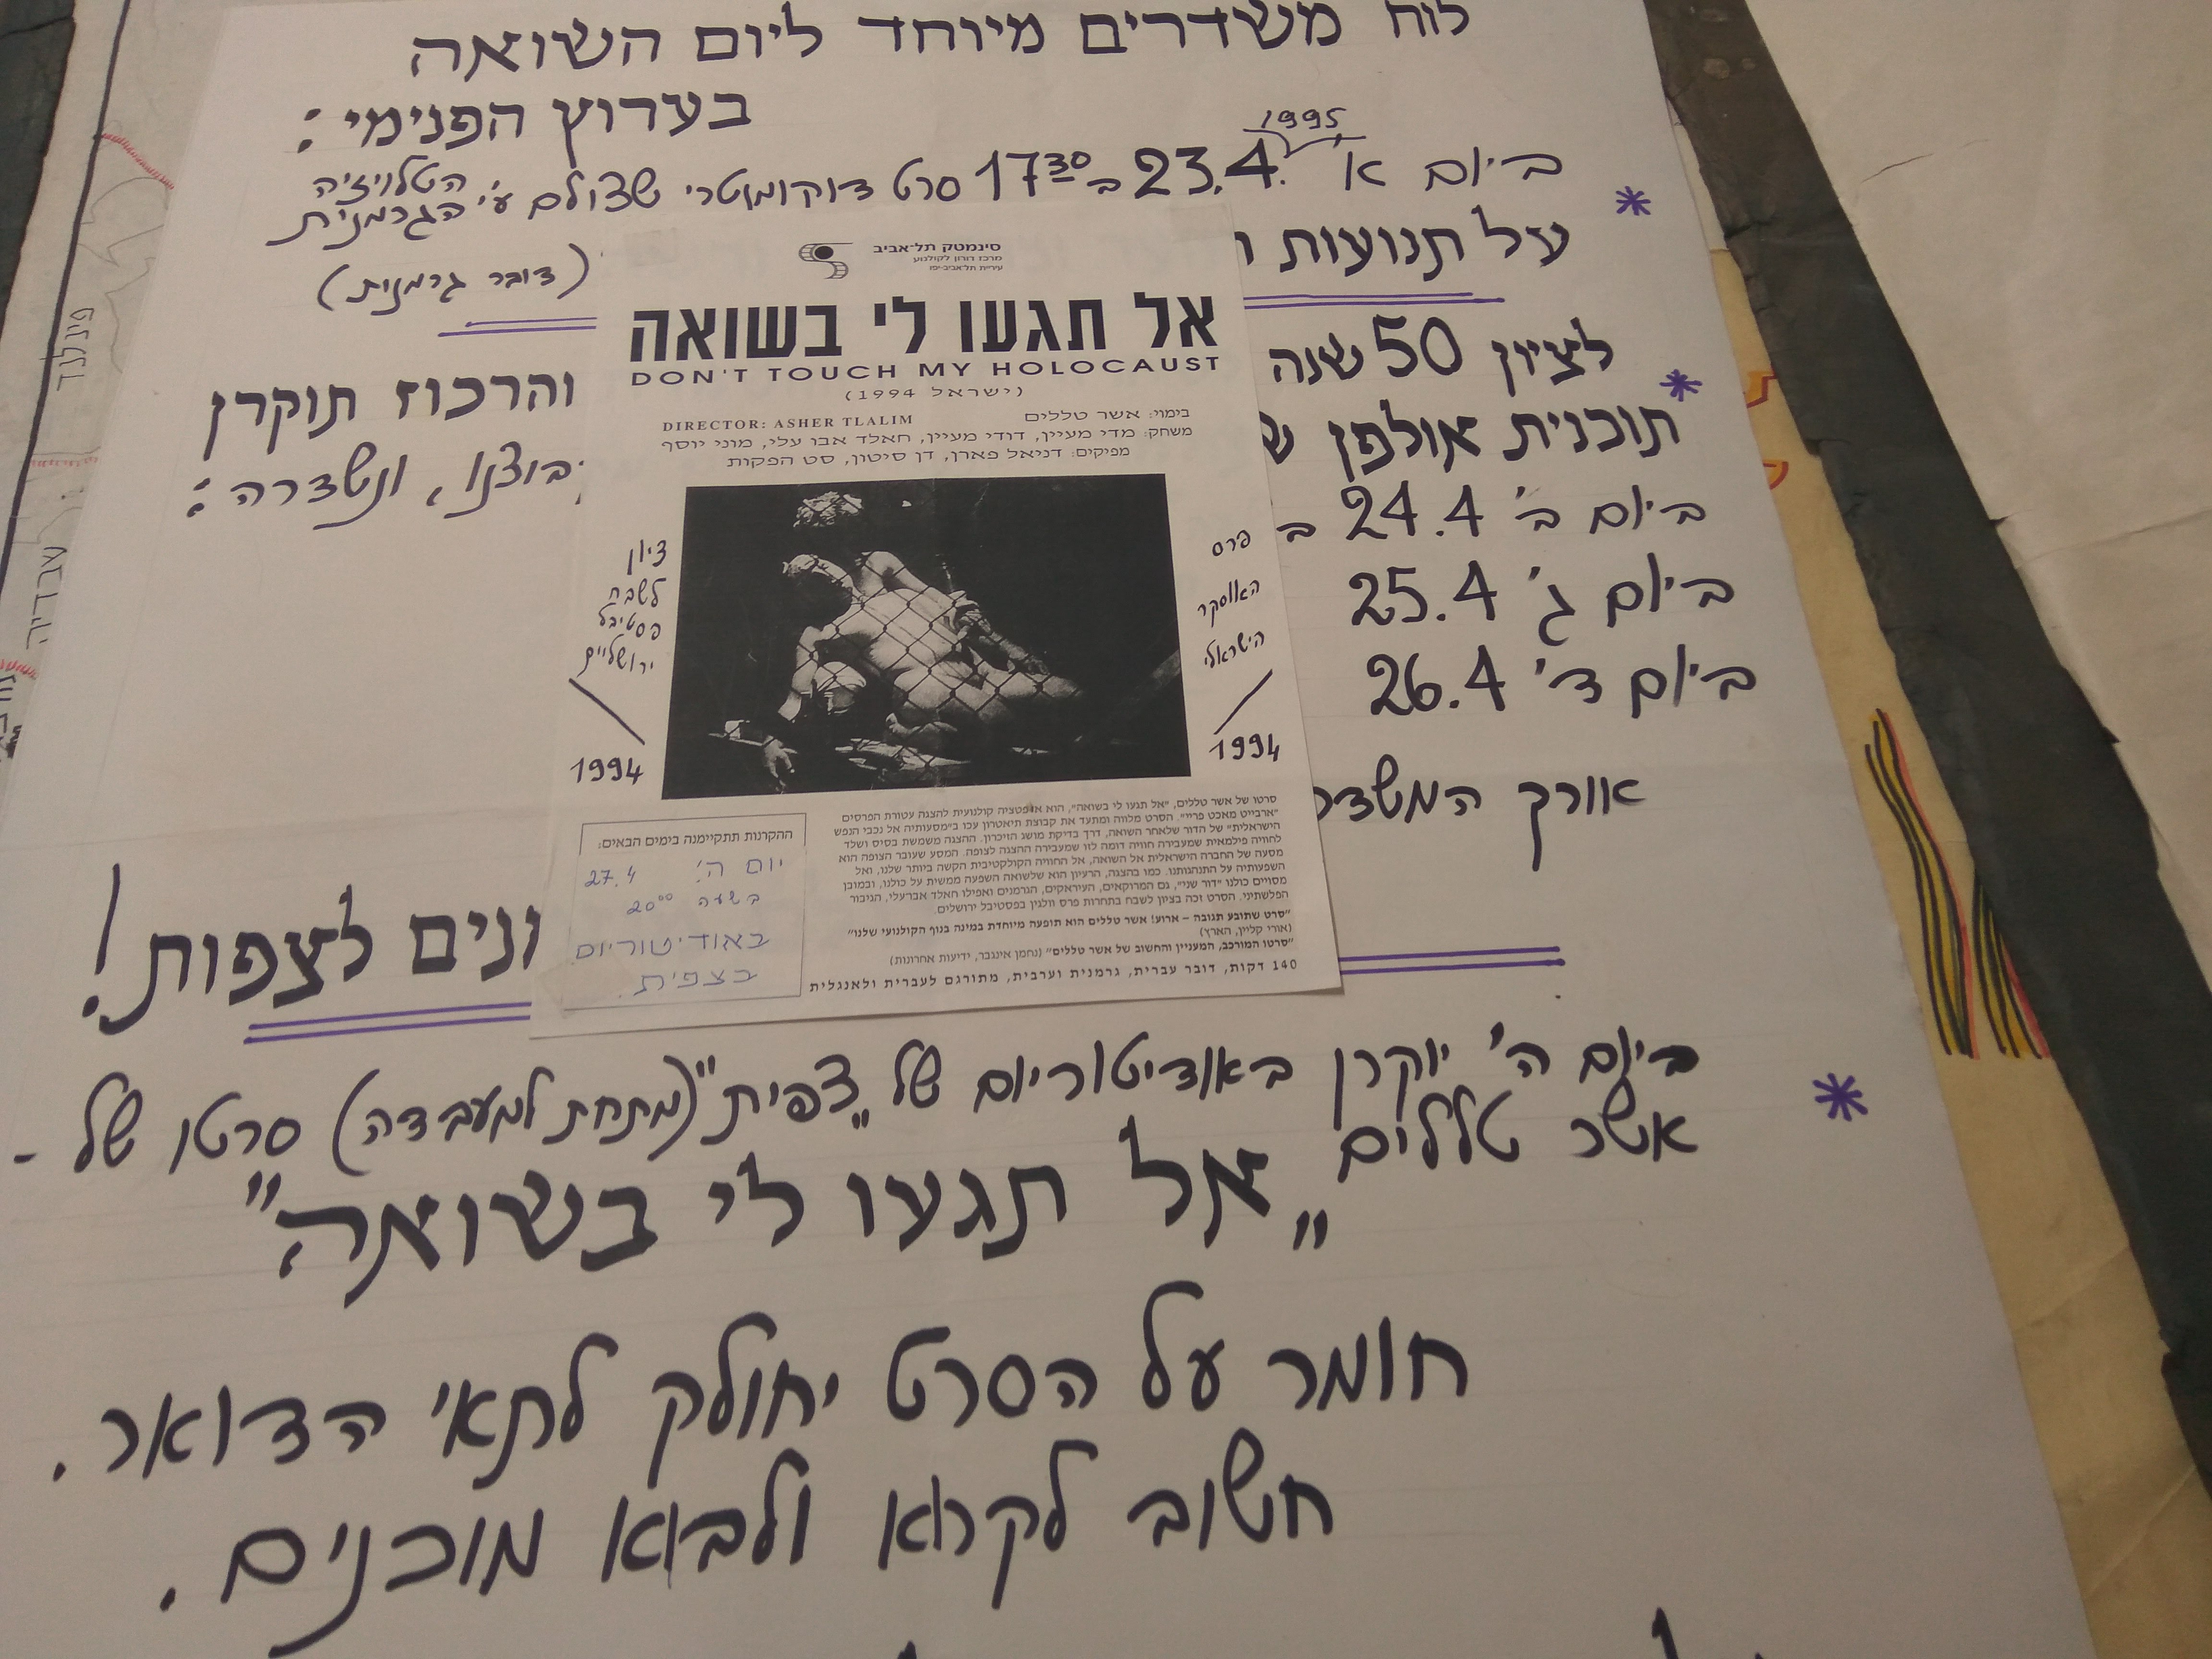 לוח משדרים מיוחד ליום השואה
בערוץ הפנימי:
1995
ביום א' 23.4. ב 17³⁰ סרט דוקומנטרי שצולם ע"י הטלויזיה
הגרמנית
על תנועות
(דובר גרמנית)
לציון 50 שנה
תוכנית אולפן
והרכוז תוקרן
ונשדרה:
ביום ב' 24.4 ב
ביום ג' 25.4
ביום ד' 26.4
אורך המשדר
לצפות!
סינמטק תל־אביב
מרכז דורון לקולנוע
עיריית תל־אביב־יפו
אל תגעו לי בשואה
DON'T TOUCH MY HOLOCAUST
(ישראל 1994)
בימוי: אשר טללים DIRECTOR: ASHER TLALIM
משחק: מדי מעיין, דודי מעיין, חאלד אבו עלי, מוני יוסף
מפיקים: דניאל פארן, דן סיטון, סט הפקות
פרס
האוסקר
הישראלי
1994
ציון
לשבח
פסטיבל
ירושלים
1994
סרטו של אשר טללים, "אל תגעו לי בשואה", הוא אדפטציה קולנועית להצגה עטורת הפרסים
"ארבייט מאכט פריי". הסרט מלווה ומתעד את קבוצת תיאטרון עכו ב"מסעותיה אל נכבי הנפש
הישראלית" של הדור שלאחר השואה, דרך בדיקת מושג הזיכרון. ההצגה משמשת בסיס ושלד
לחוויה פילמאית שמעבירה חוויה דומה לזו שמעבירה ההצגה לצופה. המסע שעובר הצופה הוא
מסעה של החברה הישראלית אל השואה, אל החוויה הקולקטיבית הקשה ביותר שלנו, ואל
השפעותיה על התנהגותנו. כמו בהצגה, הרעיון הוא שלשואה השפעה ממשית על כולנו, ובמובן
מסויים כולנו "דור שני", גם המרוקאים, העיראקים, הגרמנים ואפילו חאלד אברעלי, הגיבור
הפלשתיני. הסרט זכה בציון לשבח בתחרות פרס וולגין בפסטיבל ירושלים.
"סרט שתובע תגובה – ארוע! אשר טללים הוא תופעה מיוחדת במינה בנוף הקולנועי שלנו"
(אורי קליין, הארץ)
"סרטו המורכב, המעניין והחשוב של אשר טללים" (נחמן אינגבר, ידיעות אחרונות)
140 דקות, דובר עברית, גרמנית וערבית, מתורגם לעברית ולאנגלית
ההקרנות תתקיימנה בימים הבאים:
יום ה' 27.4
בשעה 20⁰⁰
באודיטוריום
בצפית.
ביום ה' יוקרן באודיטוריום של "צפית" (מתחת למעבדה) סרטו של -
אשר טללים
"אל תגעו לי בשואה"
חומר על הסרט יחולק לתאי הדואר.
חשוב לקרוא ולבוא מוכנים.
פינלנד